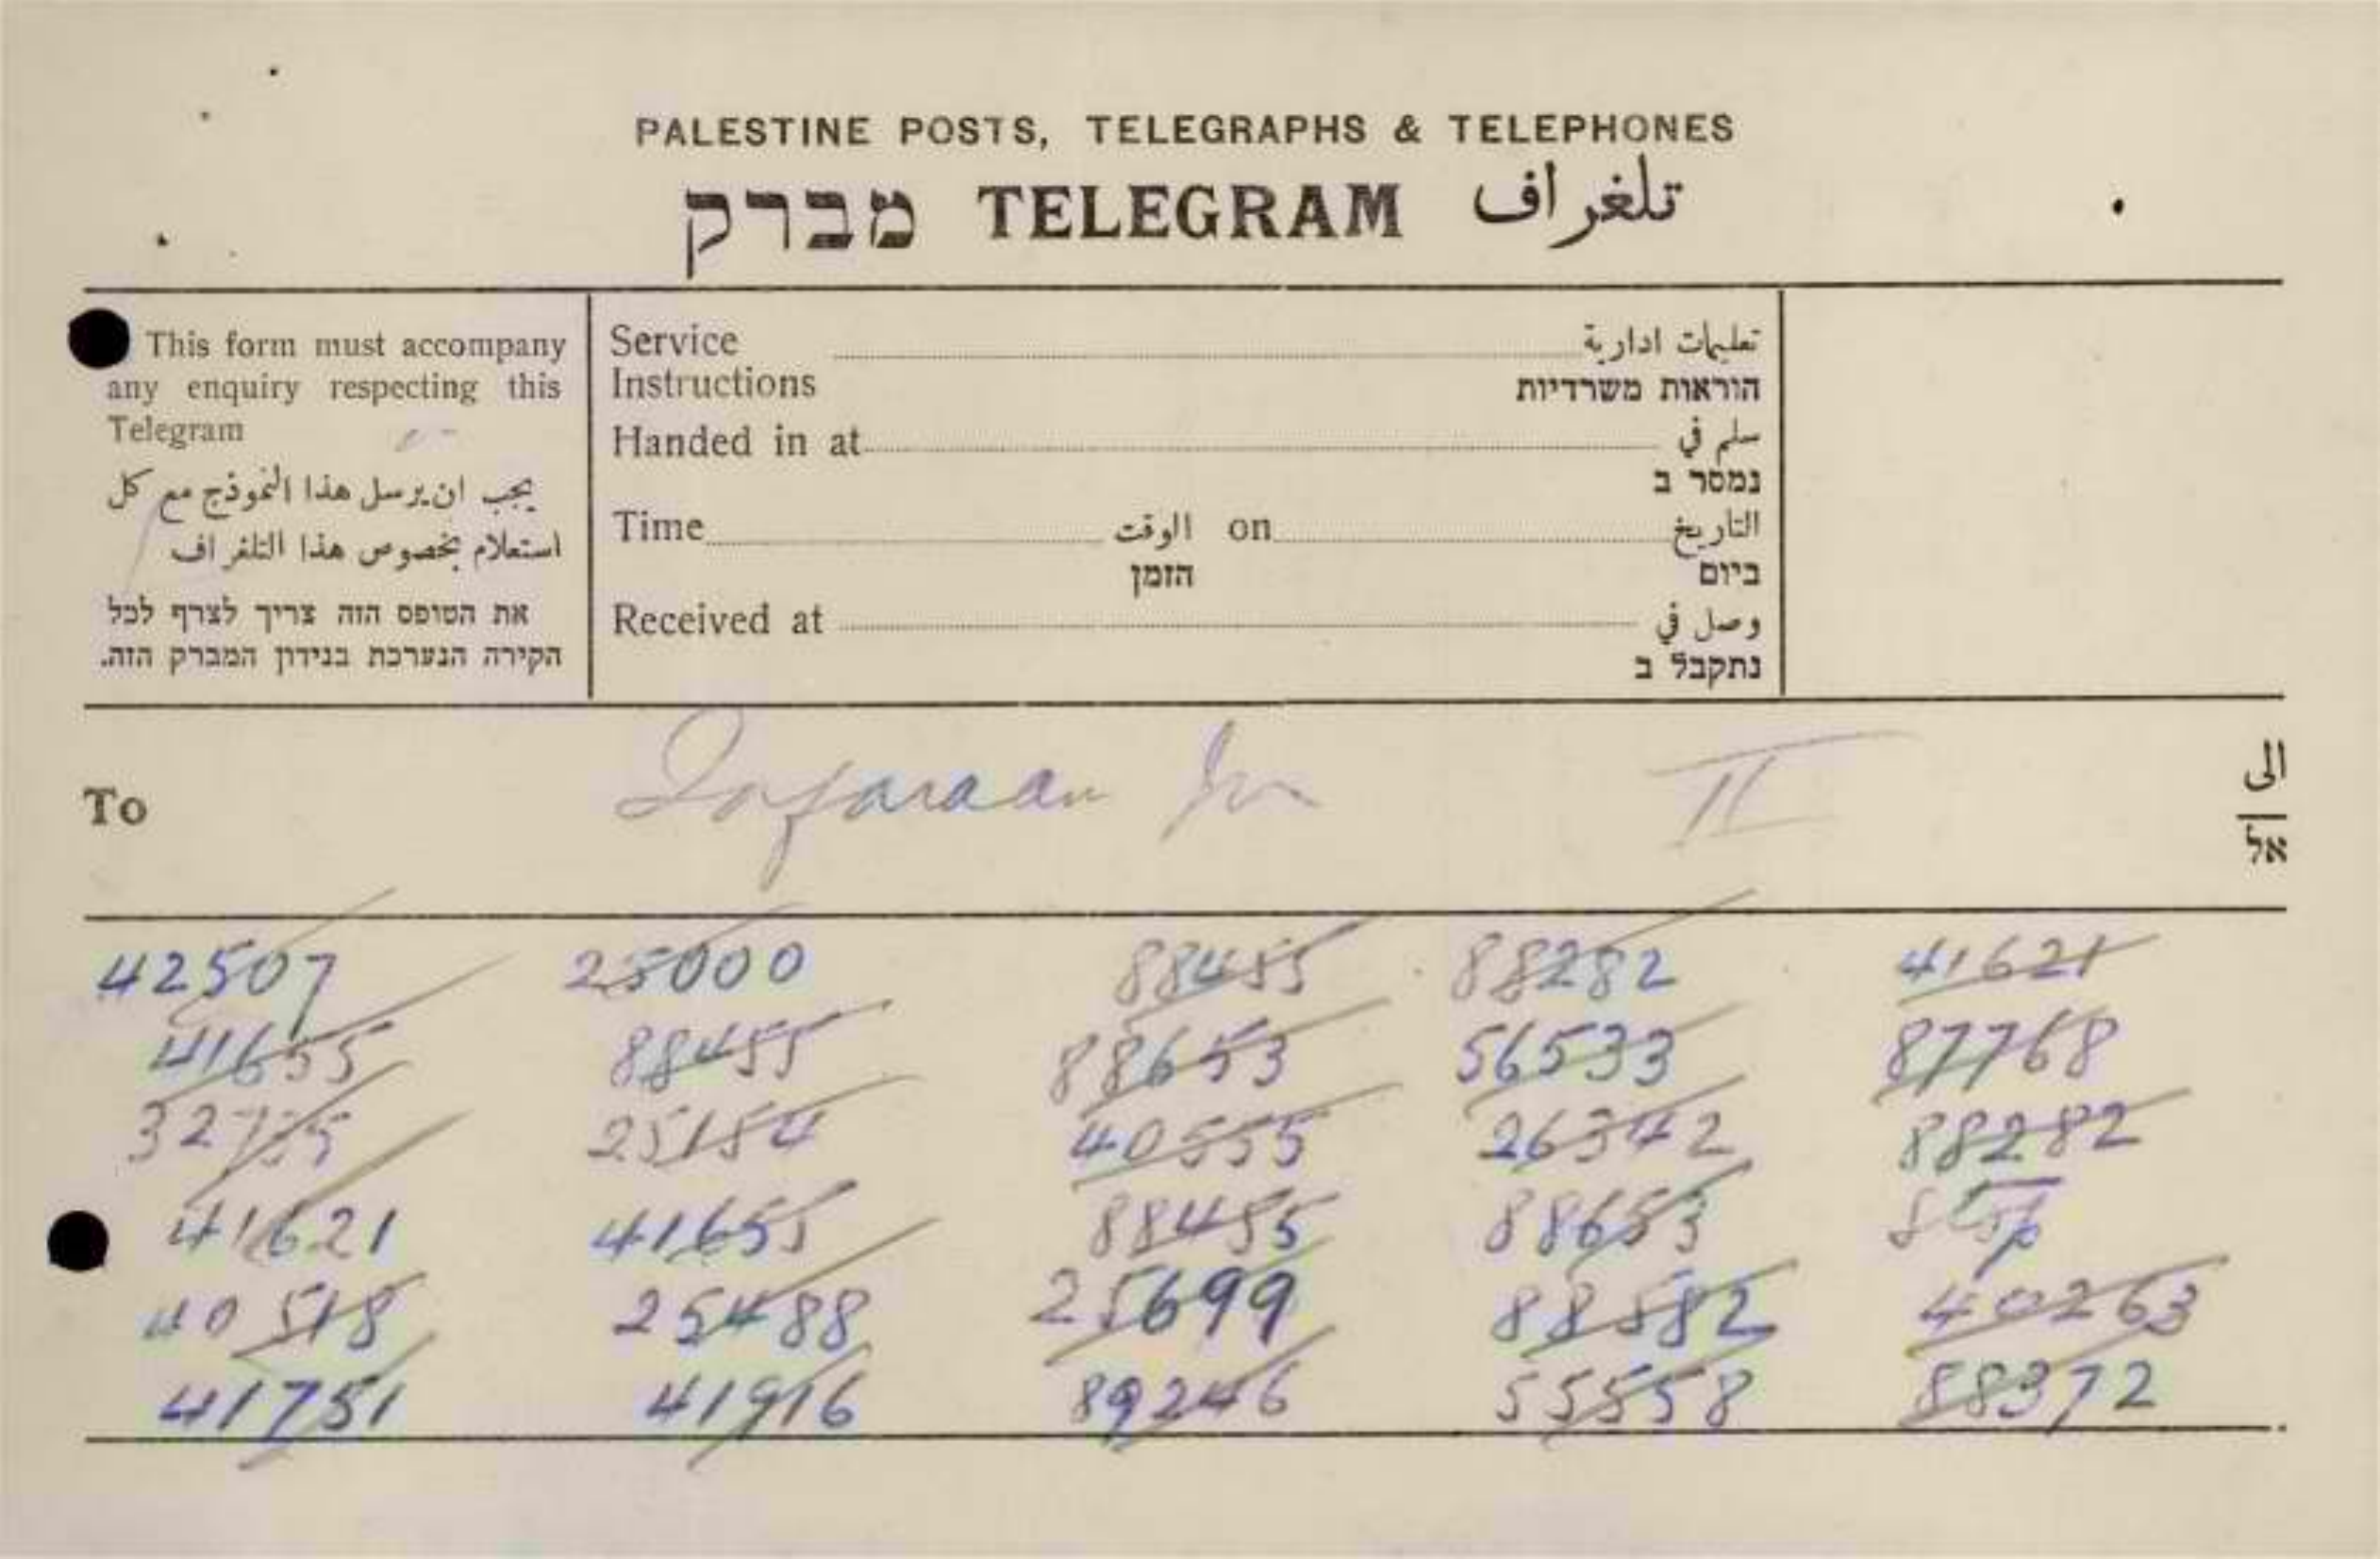 PALESTINE POSTS, TELEGRAPHS & TELEPHONES
מברק TELEGRAM تلغراف
This form must accompany
any enquiry respecting this
Telegram
يجب ان يرسل هذا النموذج مع كل
استعلام بخصوص هذا التلغراف
את הטופס הזה צריך לצרף לכל
הקירה הנערכת בנידון המברק הזה.
Service تعليمات ادارية
Instructions הוראות משרדיות
Handed in at سلم في
נמסר ב
Time الوقت on التاريخ
הזמן ביום
Received at وصل في
נתקבל ב
To II الى
אל
42507 25000 88455 88282 41621
41655 88455 88653 56533 87768
25154 40555 26342 88282
41621 41655 88455 88653
40518 25488 25699 88582 40263
41751 41916 89246 55558 88372